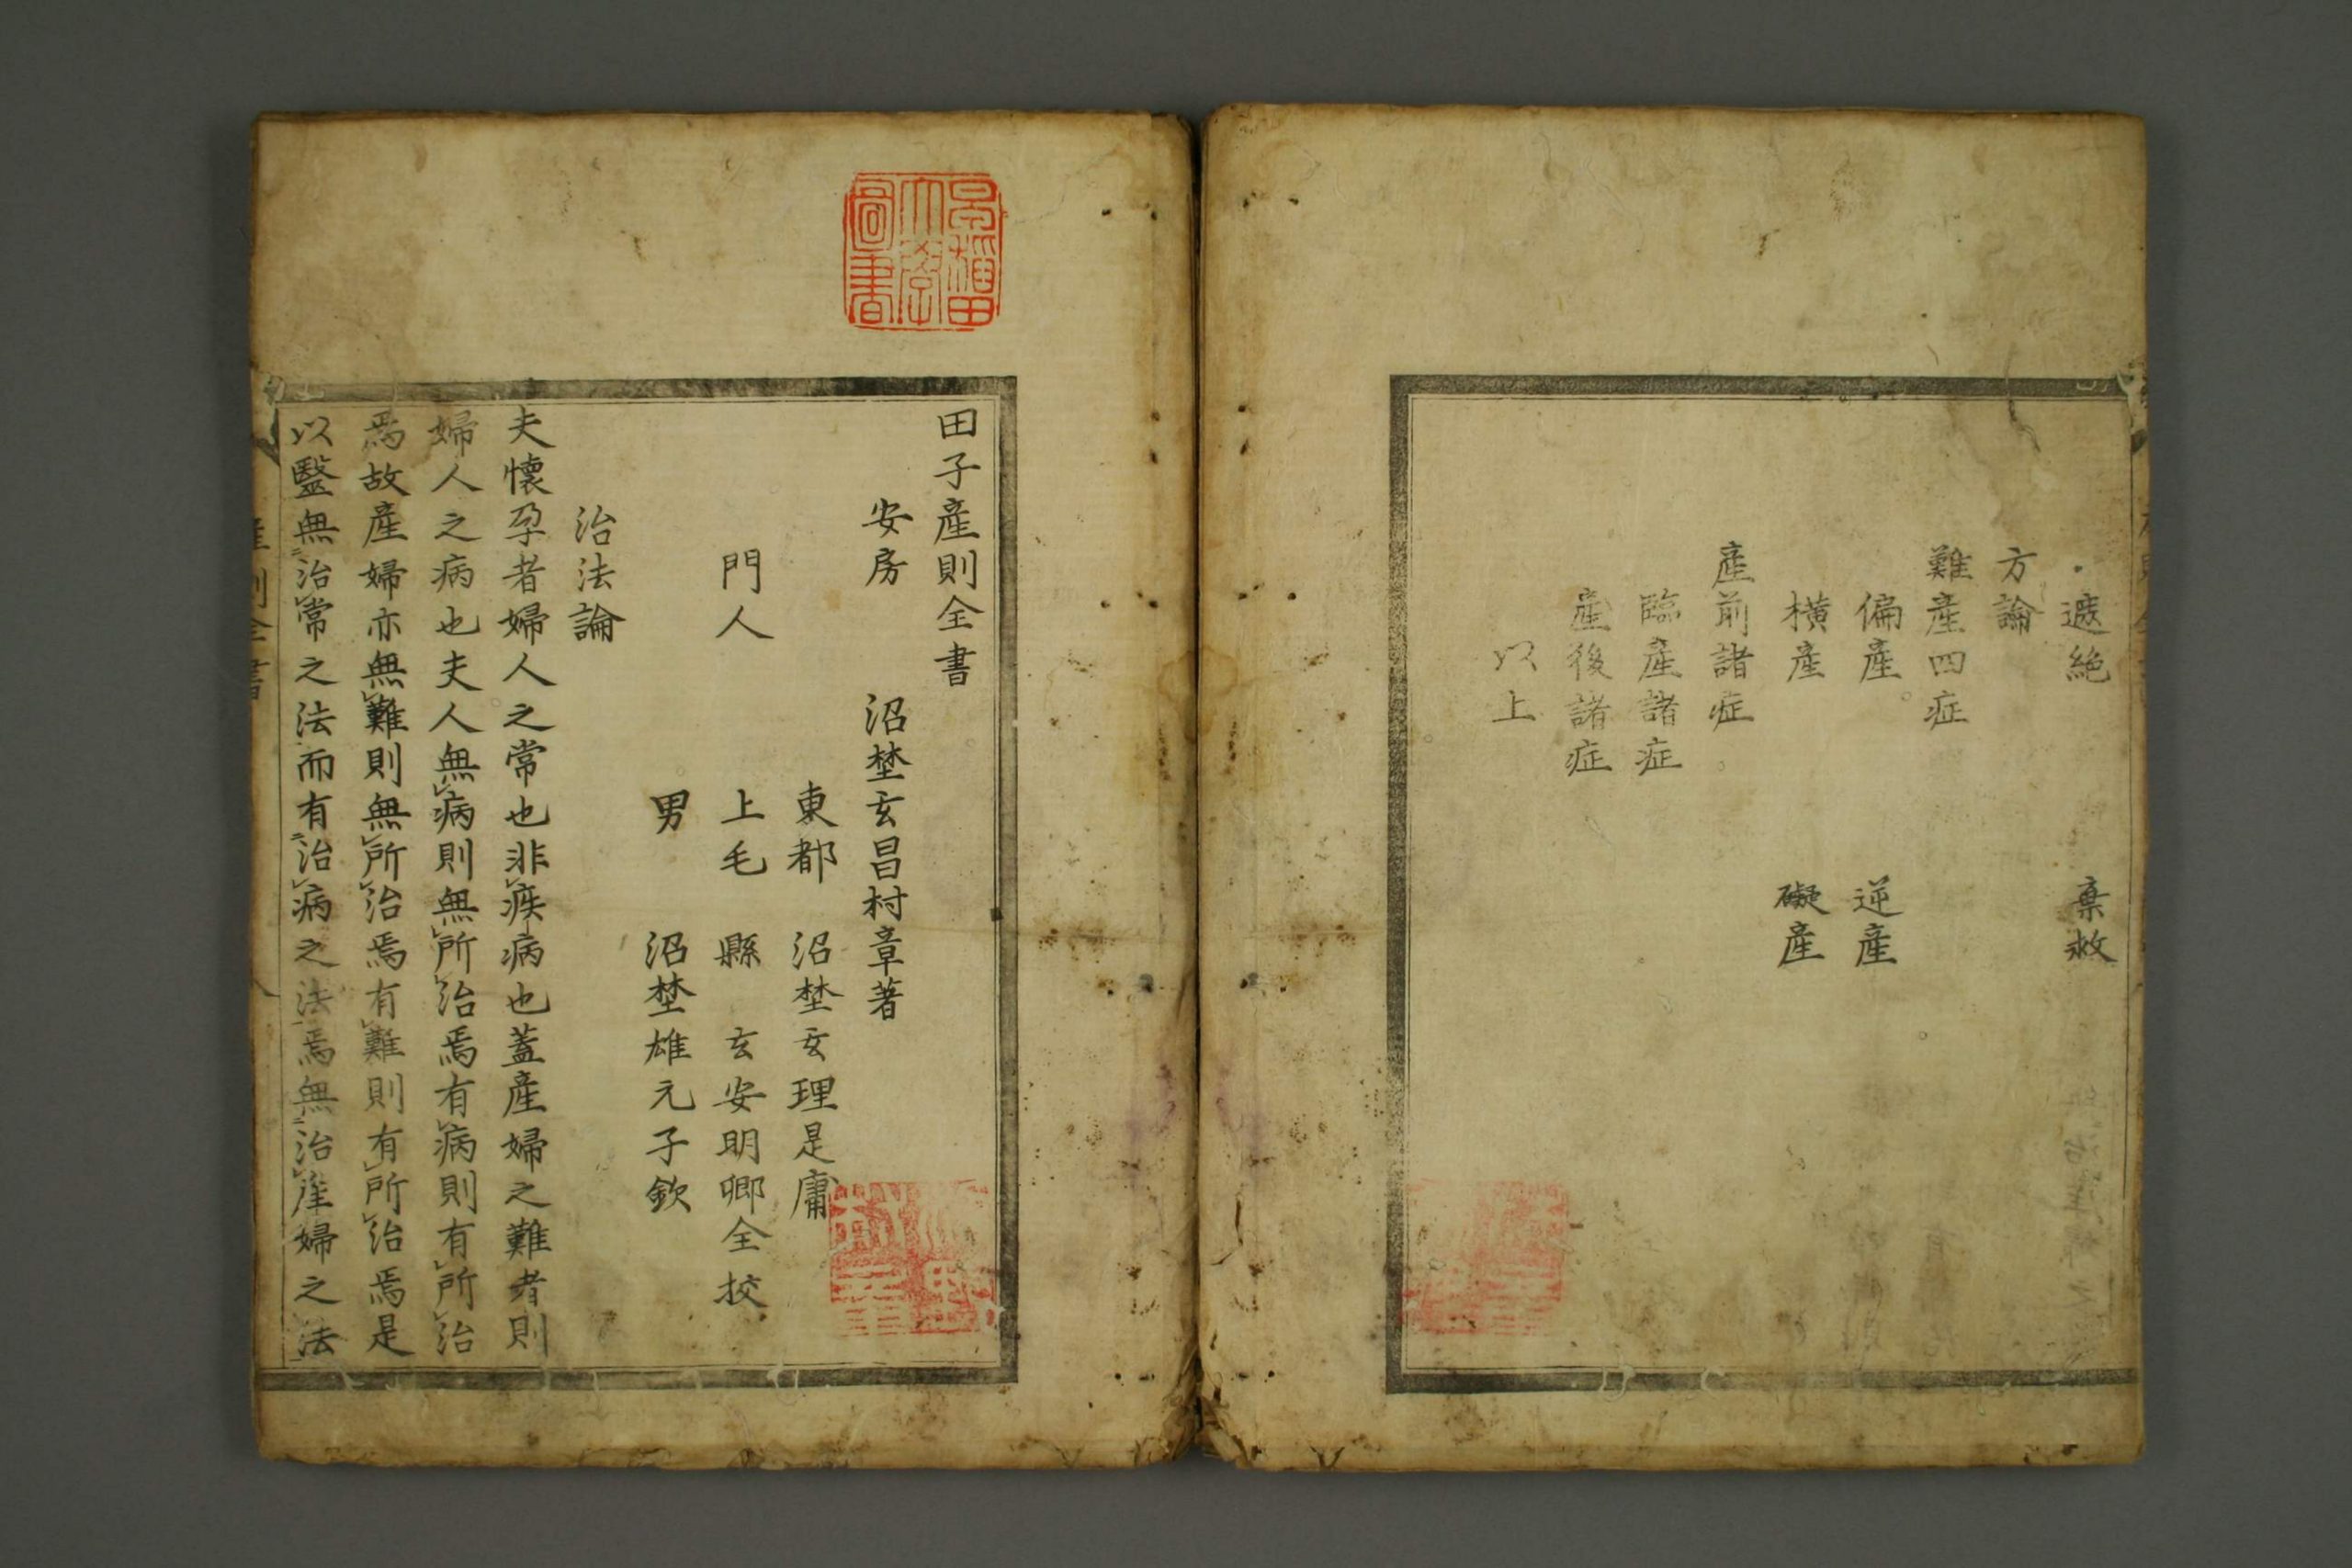 遮絶　棄救
方論
難産四症
偏産　逆産
横産　礙産
産前諸症
臨産諸症
産後諸症
以上
早稲田大學圖書
田子産則全書
安房　沼埜玄昌村章著
東都　沼埜玄理是庸
門人　上毛　縣　玄安明卿仝挍
男　沼埜雄元子欽
治法論
夫懷孕者婦人之常也非疾病也蓋産婦之難者則
婦人之病也夫人無病則無所治焉有病則有所治
焉故産婦亦無難則無所治焉有難則有所治焉是
以毉無治常之法而有治病之法焉無治産婦之法
産則全書